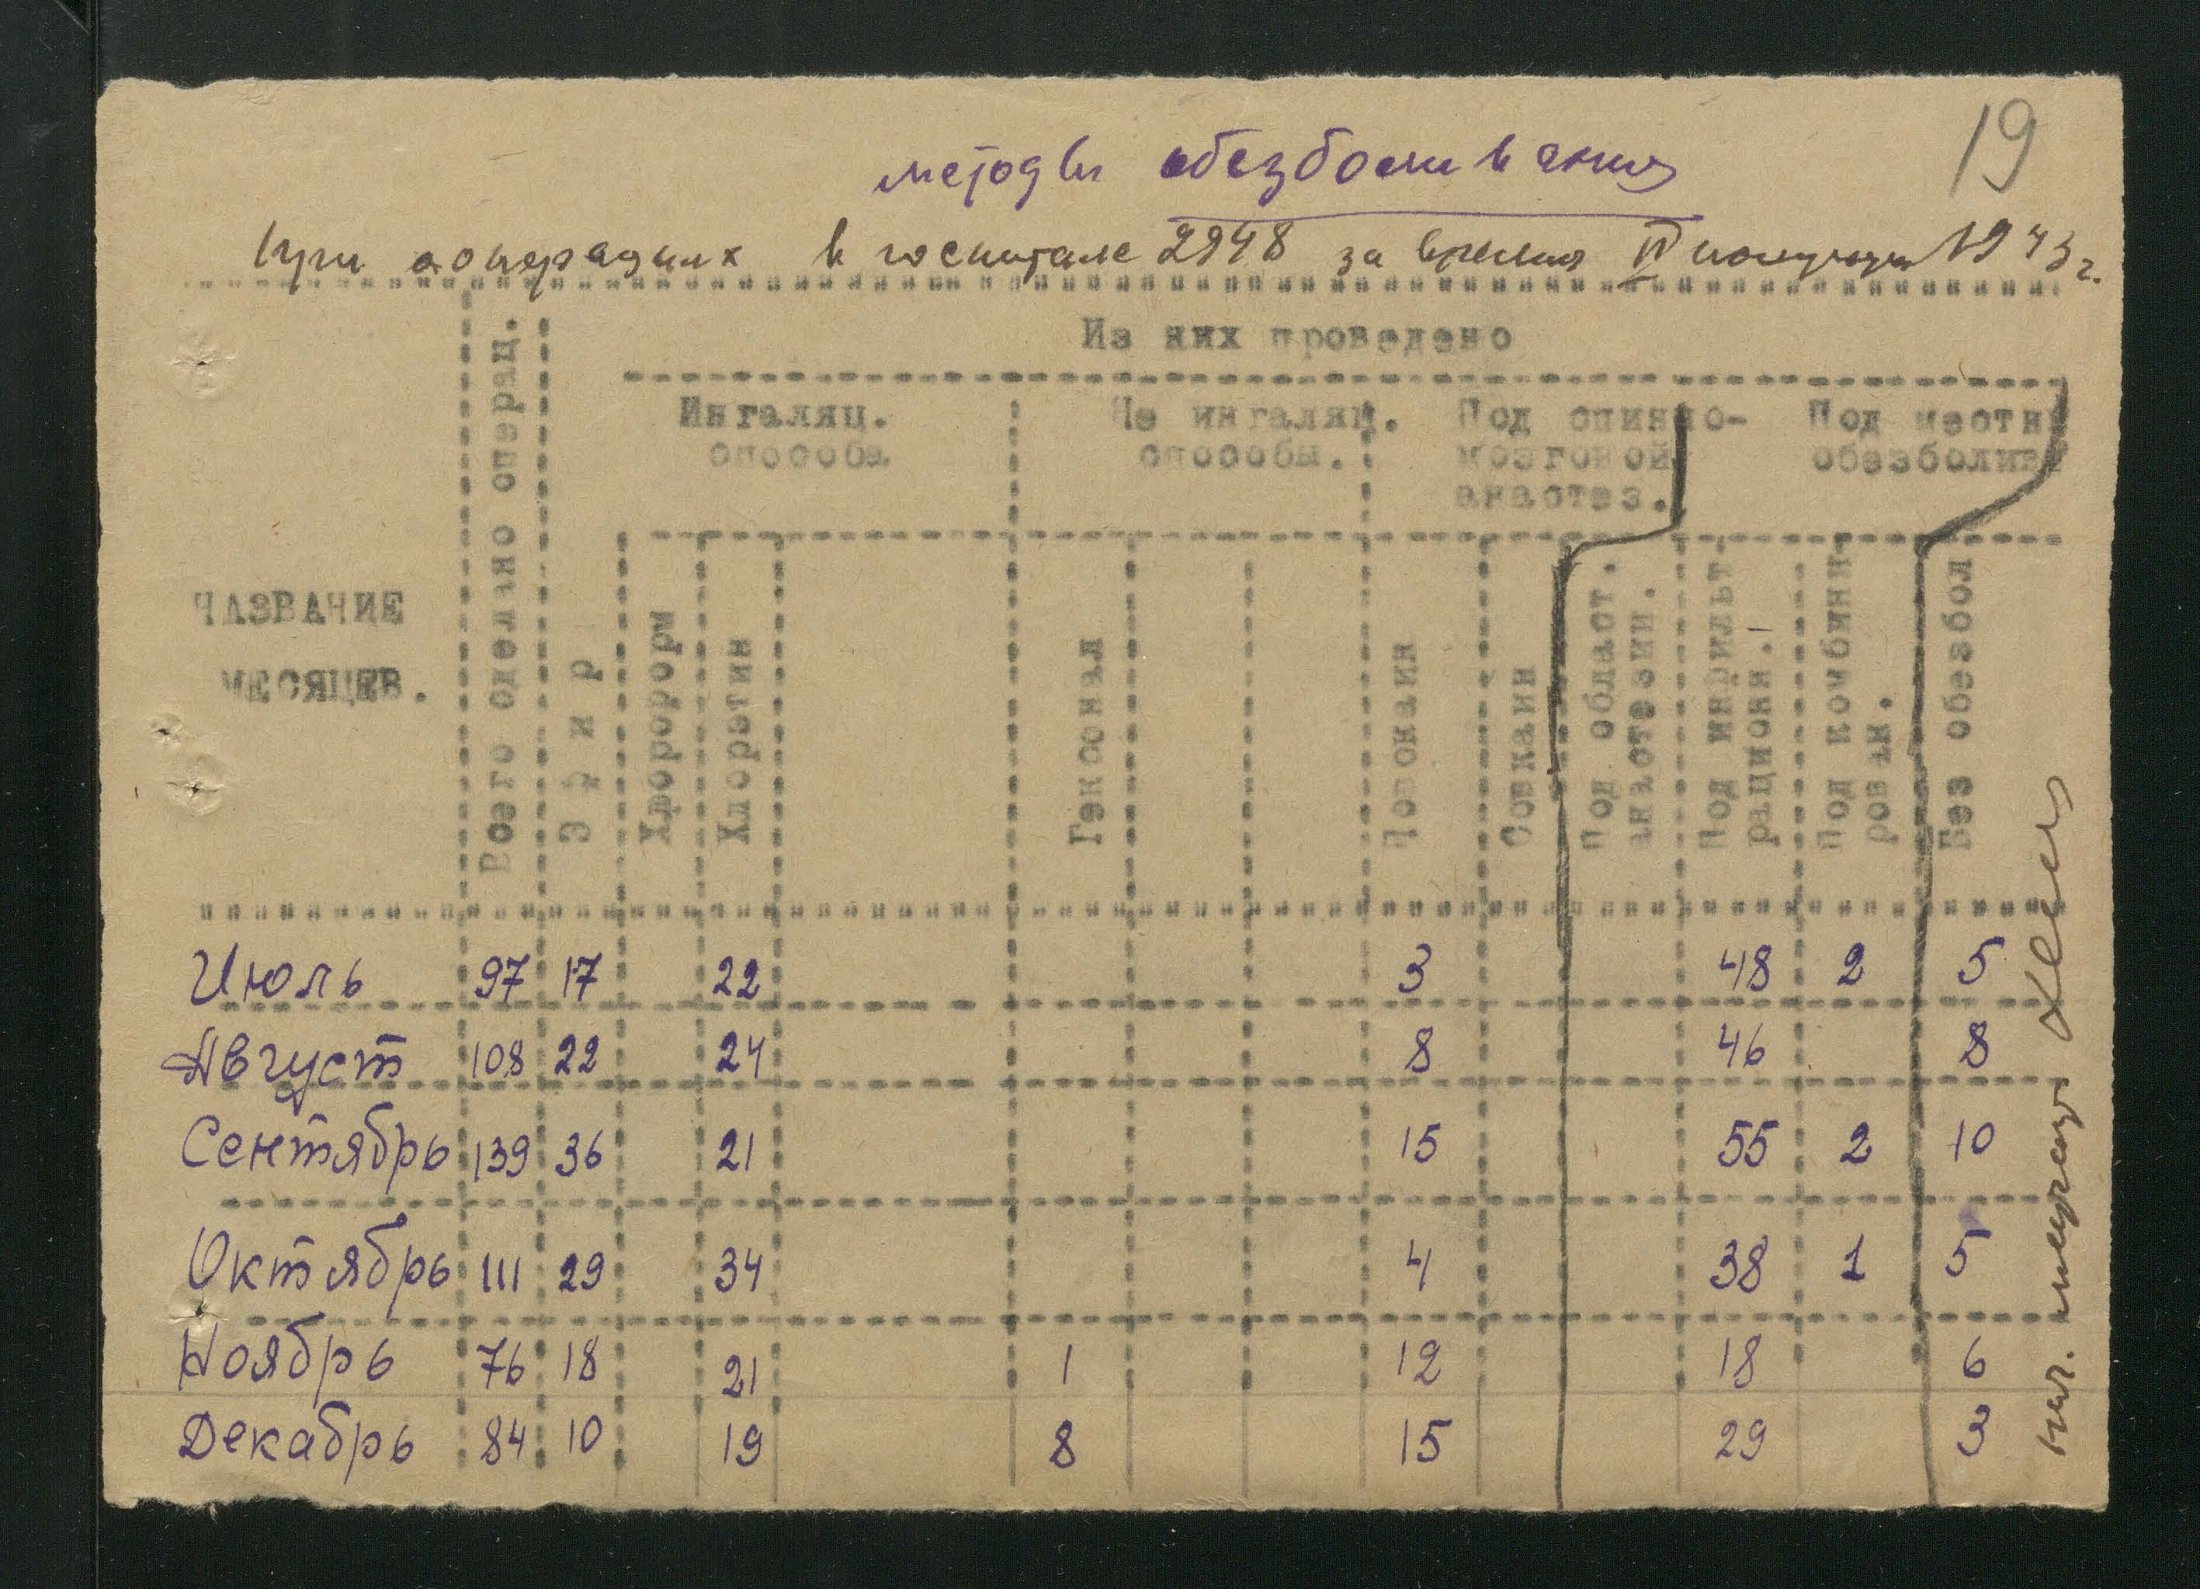 19
методы обезболивания
при операциях в госпитале 2948 за время II полугодия 1943 г.
Из них проведено
Ингаляц. способа
Не ингаляц. способы.
Под спинно-мозговой анастез.
Под местн обезболив
НАЗВАНИЕ МЕСЯЦЕВ.
Всего сделано операц.
Эфир
Хлороформ
Хлорэтил
Гексонал
Новокаин
Совкаин
Под област. анастезии.
Под инфильт рационн.
Под комбини рован.
Без обезбол
Июль 97 17 22 3 48 2 5
Август 108 22 24 8 46 8
Сентябрь 139 36 21 15 55 2 10
Октябрь 111 29 34 4 38 1 5
Ноябрь 76 18 21 1 12 18 6
Декабрь 84 10 19 8 15 29 3
нач.